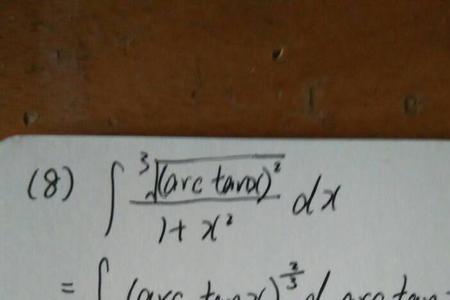 (8) ∫ ³√(arc tanx)² / 1+x² dx
= ∫ (arc tanx)^(2/3) d arc tan